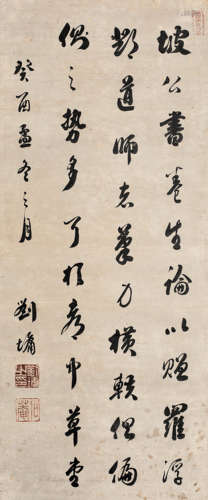 坡公書養生論以贈羅浮
鄧道師老筆力橫軼但偏
側之勢多了於希中草臺
癸酉孟冬之月
劉墉